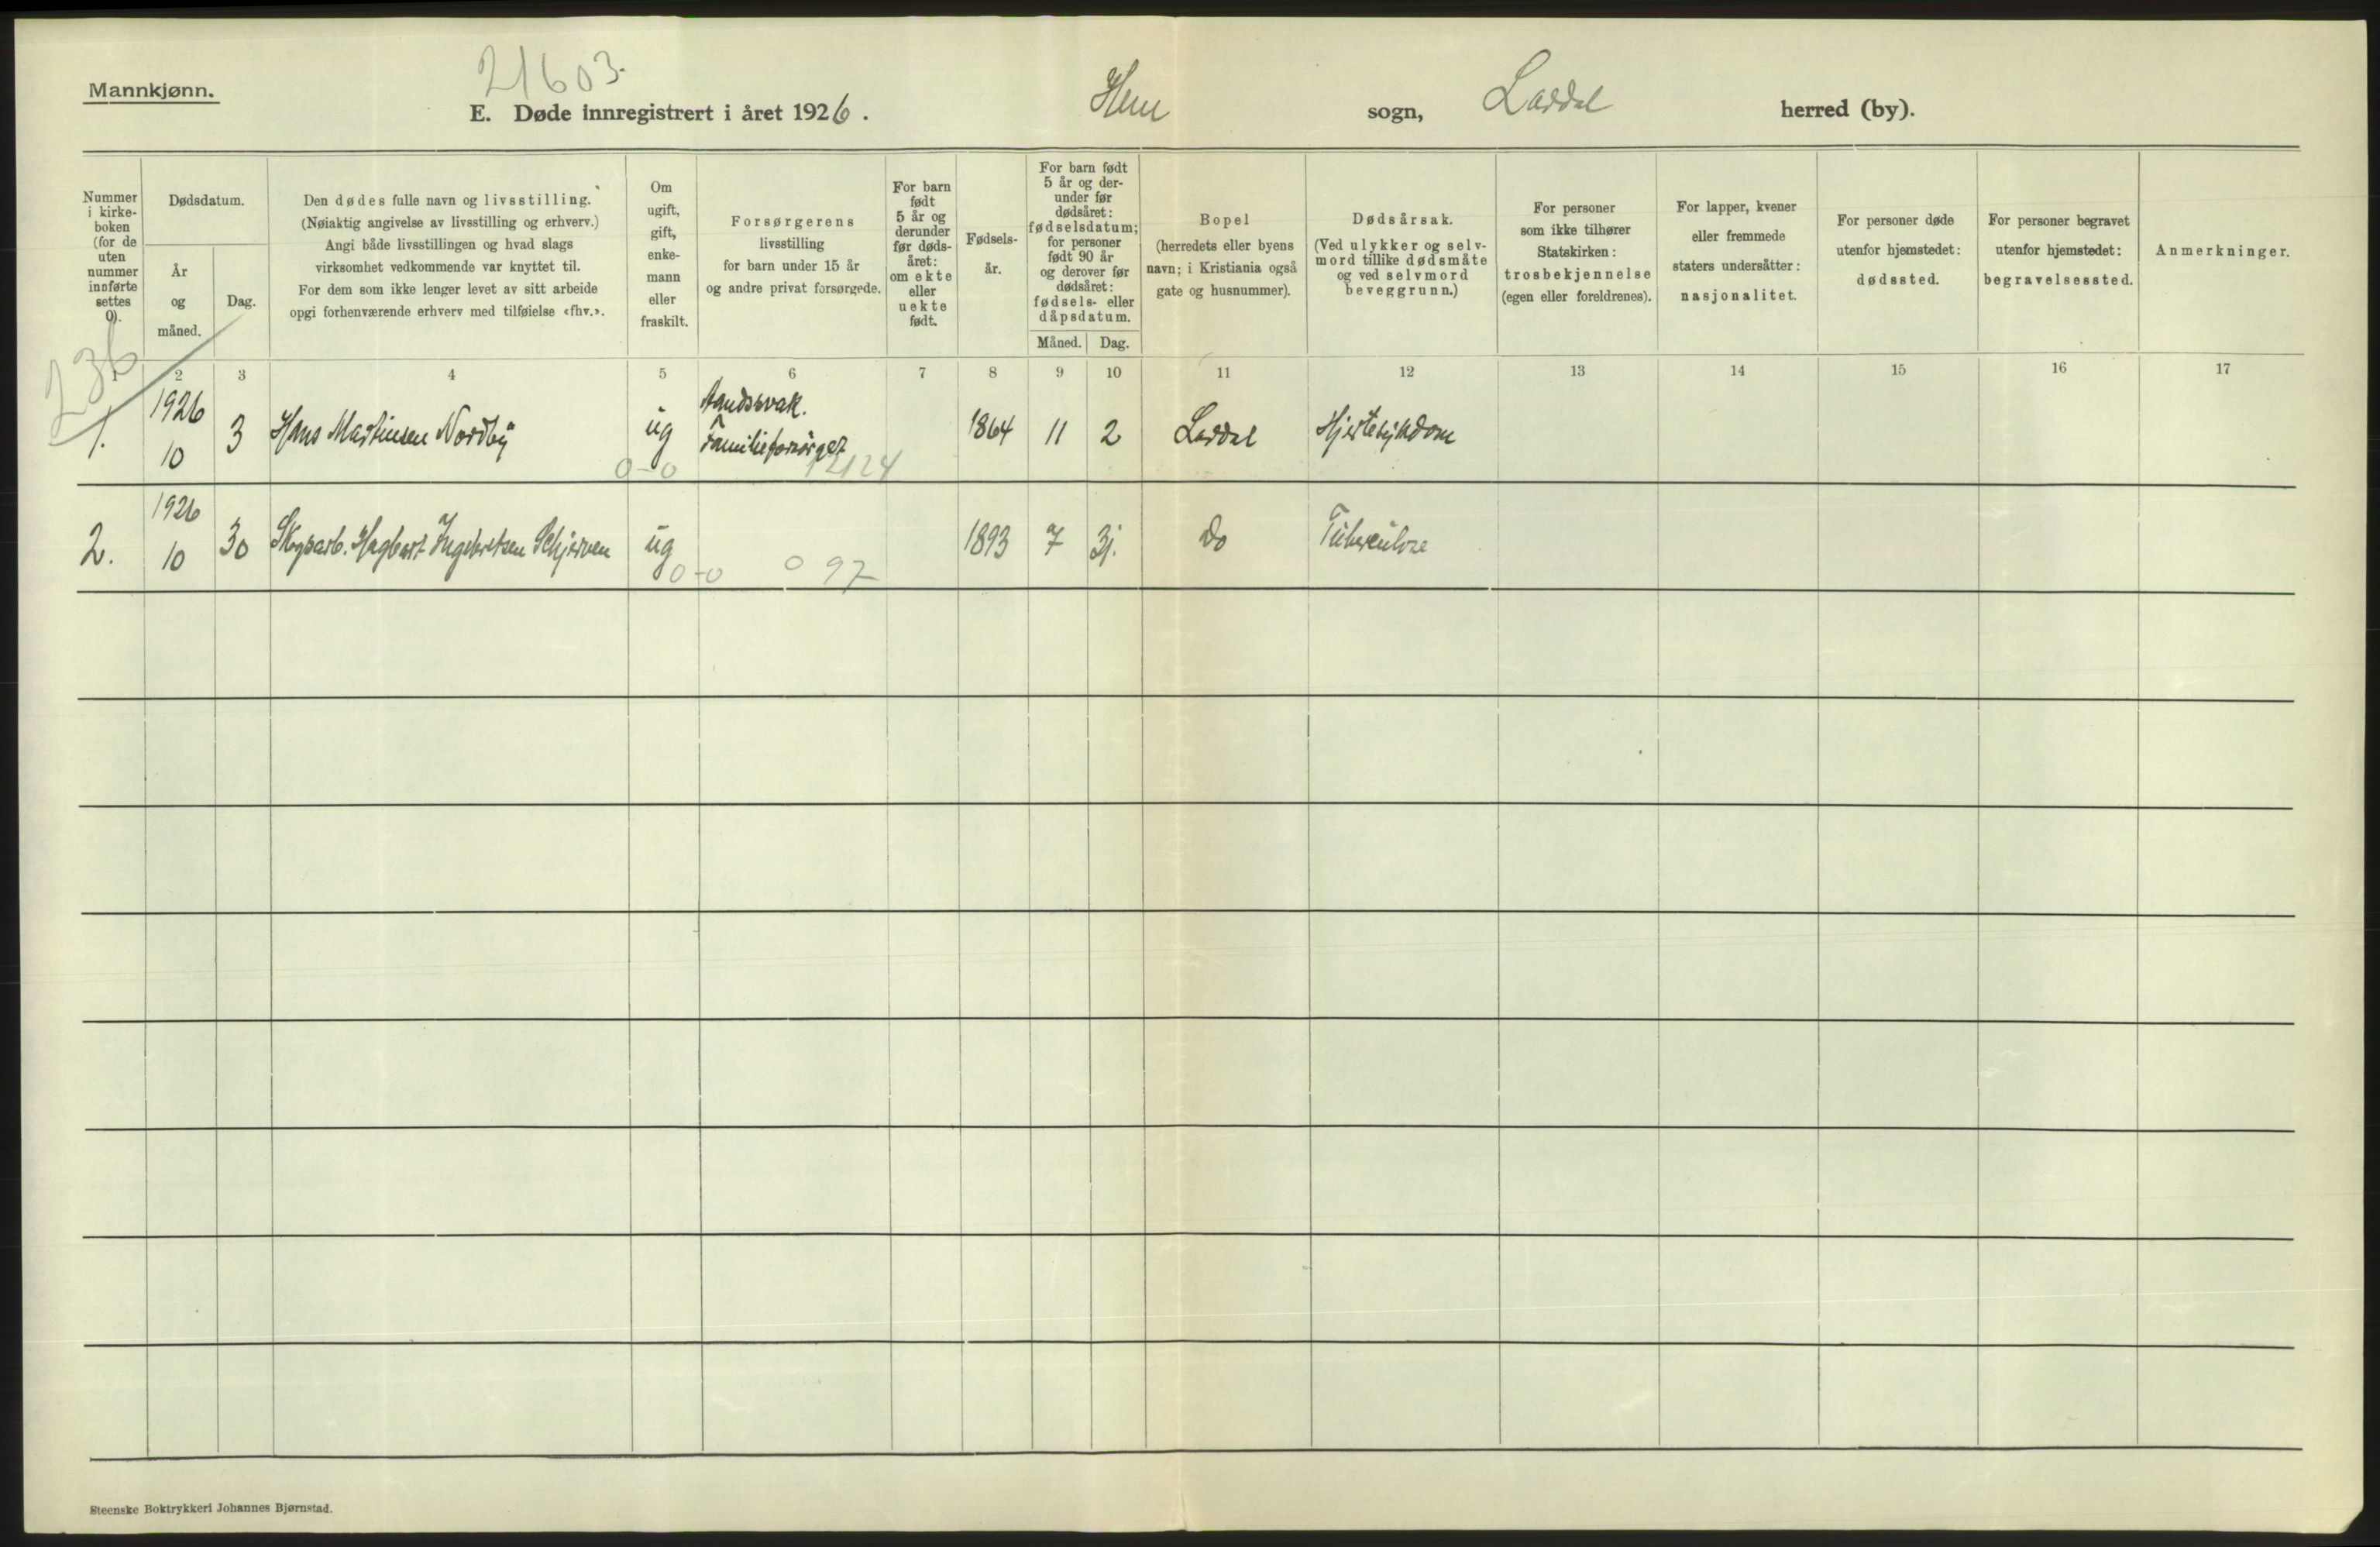 Mannkjønn.
21603.
E. Døde innregistrert i året 1926.
Hem sogn, Lardal herred (by).
Nummer i kirkeboken (for de uten nummer innførte settes 0).
Dødsdatum.
År og måned.
Dag.
Den dødes fulle navn og livsstilling.
(Nøiaktig angivelse av livsstilling og erhverv.)
Angi både livsstillingen og hvad slags
virksomhet vedkommende var knyttet til.
For dem som ikke lenger levet av sitt arbeide
opgi forhenværende erhverv med tilføielse «fhv.».
Om
ugift,
gift,
enke-
mann
eller
fraskilt.
Forsørgerens
livsstilling
for barn under 15 år
og andre privat forsørgede.
For barn
født
5 år og
derunder
før døds-
året:
om ekte
eller
uekte
født.
Fødsels-
år.
For barn født
5 år og der-
under før
dødsåret:
fødselsdatum;
for personer
født 90 år
og derover før
dødsåret:
fødsels- eller
dåpsdatum.
Måned. Dag.
Bopel
(herredets eller byens
navn; i Kristiania også
gate og husnummer).
Dødsårsak.
(Ved ulykker og selv-
mord tillike dødsmåte
og ved selvmord
beveggrunn.)
For personer
som ikke tilhører
Statskirken:
trosbekjennelse
(egen eller foreldrenes).
For lapper, kvener
eller fremmede
staters undersåtter:
nasjonalitet.
For personer døde
utenfor hjemstedet:
dødssted.
For personer begravet
utenfor hjemstedet:
begravelsessted.
Anmerkninger.
236
1 2 3 4 5 6 7 8 9 10 11 12 13 14 15 16 17
1. 1926 10 3 Hans Martinsen Nordby ug Aandssvak. Familieforsørget 1864 11 2 Lardal Hjertesykdom
0-0 12124
2. 1926 10 30 Skogsarb. Hagbart Ingebretsen Schjerven ug 1893 7 31. Do Tuberculose
0-0 0 97
Steenske Boktrykkeri Johannes Bjørnstad.